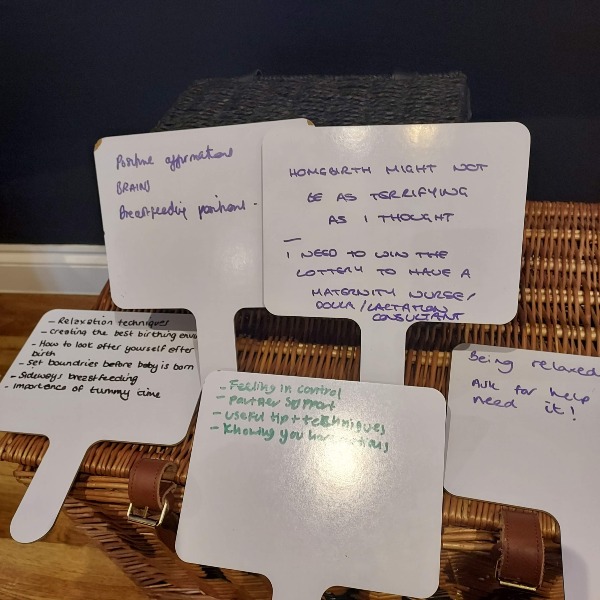 Positive affirmations
BRAINS
Breastfeeding positions.
HOMEBIRTH MIGHT NOT
BE AS TERRIFYING
AS I THOUGHT
—
I NEED TO WIN THE
LOTTERY TO HAVE A
MATERNITY NURSE/
DOULA/LACTATION
CONSULTANT
- Relaxation techniques
- Creating the best birthing
- How to look after yourself after
birth
- Set boundries before baby is born
- Sideways breastfeeding
- Importance of tummy time
- Feeling in control
- Partner support
- useful tip + techniques
- Knowing you have options
Being relaxed
Ask for help
need it!